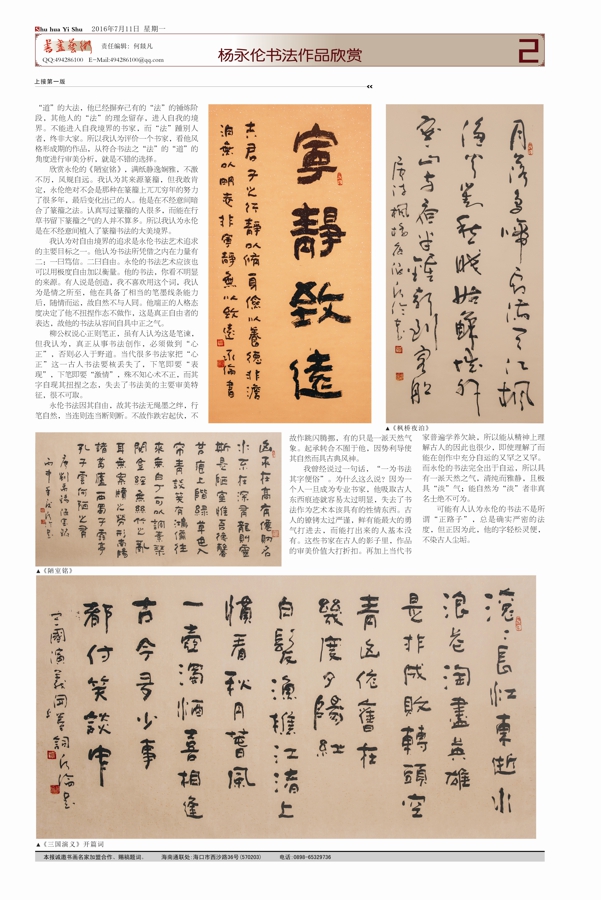 Shu hua Yi Shu 2016年7月11日 星期一
书画艺术
责任编辑：何颖凡
QQ:494286100 E-Mail:494286100@qq.com
杨永伦书法作品欣赏
2
上接第一版
“道”的大法，他已经摒弃已有的“法”的锤炼阶
段，其他人的“法”的理念留存，进入自我的境
界。不能进入自我境界的书家，而“法”踵别人
者，终非大家。所以我认为评价一个书家，看他风
格形成期的作品，从符合书法之“法”的“道”的
角度进行审美分析，就是不错的选择。
欣赏永伦的《陋室铭》，满纸静逸娴雅，不激
不厉，风规自远。我认为其来源篆籀，但我敢肯
定，永伦绝对不会是那种在篆籀上兀兀穷年的努力
了很多年，最后变化出己的人。他是在不经意间暗
合了篆籀之法。认真写过篆籀的人很多，而能在行
草书留下篆籀之气的人并不算多。所以我认为永伦
是在不经意间植入了篆籀书法的大美境界。
我认为对自由境界的追求是永伦书法艺术追求
的主要目标之一。他认为书法所凭借之内在力量有
二：一曰笃信。二曰自由。永伦的书法艺术应该也
可以用极度自由加以衡量。他的书法，你看不明显
的来源。有人说是创造，我不喜欢用这个词。我认
为是情之所至，他在具备了相当的笔墨线条能力
后，随情而运，故自然不与人同。他端正的人格态
度决定了他不担捏作态不做作，这是真正自由者的
表达，故他的书法从容间自具中正之气。
柳公权说心正则笔正，虽有人认为这是笔谏，
但我认为，真正从事书法创作，必须做到“心
正”，否则必人于野道。当代很多书法家把“心
正”这一古人书法要核丢失了，下笔即要“表
现”，下笔即要“激情”，殊不知心术不正，而其
字自现其扭捏之态，失去了书法美的主要审美特
征，很不可取。
永伦书法因其自由，故其书法无绳墨之绊，行
笔自然，当连则连当断则断。不故作跌宕起伏，不
故作跳闪腾挪，有的只是一派天然气
象。起承转合不囿于他，因势利导使
其自然而具古典风神。
我曾经说过一句话，“一为书法
其字便俗”。为什么这么说？因为一
个人一旦成为专业书家，他吸取古人
东西痕迹就容易太过明显，失去了书
法作为艺术本该具有的性情东西。古
人的镣铐太过严谨，鲜有能最大的勇
气打进去，而能打出来的人基本没
有。这些书家在古人的影子里，作品
的审美价值大打折扣。再加上当代书
家普遍学养欠缺，所以能从精神上理
解古人的因此也很少，即使理解了而
能在创作中充分自运的又罕之又罕。
而永伦的书法完全出于自运，所以具
有一派天然之气，清纯而雅静，且极
具“淡”气；能自然为“淡”者非真
名士绝不可为。
可能有人认为永伦的书法不是所
谓“正路子”，总是确实严密的法
度，但正因为此，他的字轻松灵便，
不染古人尘垢。
寧靜致遠
夫君子之行靜以修身儉以養德非澹
泊無以明志非寧靜無以致遠 永倫書
月落烏啼霜滿天江楓
漁火對愁眠姑蘇城外
寒山寺夜半鐘聲到客船
▲《枫桥夜泊》
▲《陋室铭》
滾滾長江東逝水
浪花淘盡英雄
是非成敗轉頭空
青山依舊在
幾度夕陽紅
白髮漁樵江渚上
慣看秋月春風
一壺濁酒喜相逢
古今多少事
都付笑談中
三國演義開卷詞
▲《三国演义》开篇词
本报诚邀书画名家加盟合作、赐稿题词。 海南通联处：海口市西沙路36号(570203) 电话：0898-65329736